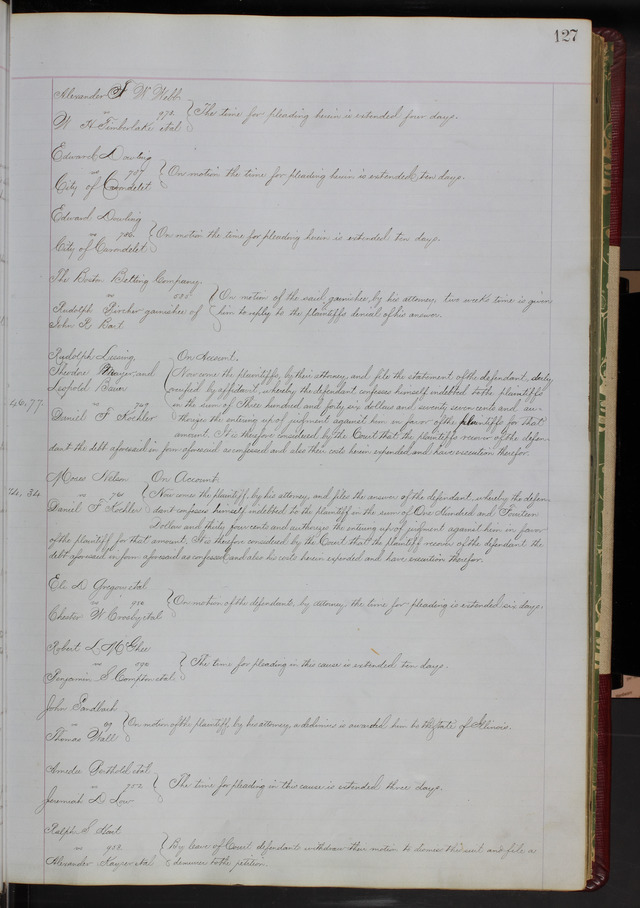 127
Alexander F. W. Webb
vs 972 } The time for pleading herein is extended four days.
W H Timberlake et al
Edward Dowling
vs 787 } On motion the time for pleading herein is extended ten days.
City of Carondelet
Edward Dowling
vs 786 } On motion the time for pleading herein is extended ten days.
City of Carondelet
The Boston Belting Company
vs } On motion of the said garnishee, by his attorney two weeks time is given
Rudolph Kircher garnishee of } him to reply to the plaintiffs denial of his answer.
John P
Rudolph On Account.
Theodore and } Now come the plaintiffs, by their attorney, and file the statement of the defendant, duly
Leopold verified by affidavit, whereby the defendant confesses himself indebted to the plaintiffs
46.77
vs 769 in the sum of Three hundred and forty six dollars and seventy seven cents and au-
Daniel F Kochler thorizes the entering up of judgment against him in favor of the plaintiffs for that
amount. It is therefore considered by the Court that the plaintiffs recover of the defen-
dant the debt aforesaid in form aforesaid as confessed and also their costs herein expended, and have execution therefor.
Moses Nelson On Account
14.34
vs 761 } Now comes the plaintiff, by his attorney, and files the answer of the defendant, whereby the defen-
Daniel F Kochler dant confesses himself indebted to the plaintiff in the sum of One Hundred and Fourteen
Dollars and thirty four cents and authorizes the entering up of judgment against him in favor
of the plaintiff for that amount. It is therefore considered by the Court that the plaintiff recover of the defendant the
debt aforesaid in form aforesaid as confessed and also his costs herein expended and have execution therefor.
Eli D Gregson et al
vs 916 } On motion of the defendants, by attorney the time for pleading is extended six days.
Chester W Crosby et al
Robert L McGhee
vs 090 } The time for pleading in this cause is extended ten days.
Benjamin S Compton et al
John Sandbach
vs 09 } On motion of the plaintiff by his attorney, a dedimus is awarded him to the State of Illinois.
Thomas Wall
Amedee Berthold et al
vs 702 } The time for pleading in this cause is extended three days.
Jeremiah D Low
Ralph S Hart
vs 928 } By leave of Court defendant withdraw their motion to dismiss the suit and file a
Alexander Kayser et al } demurrer to the petition.